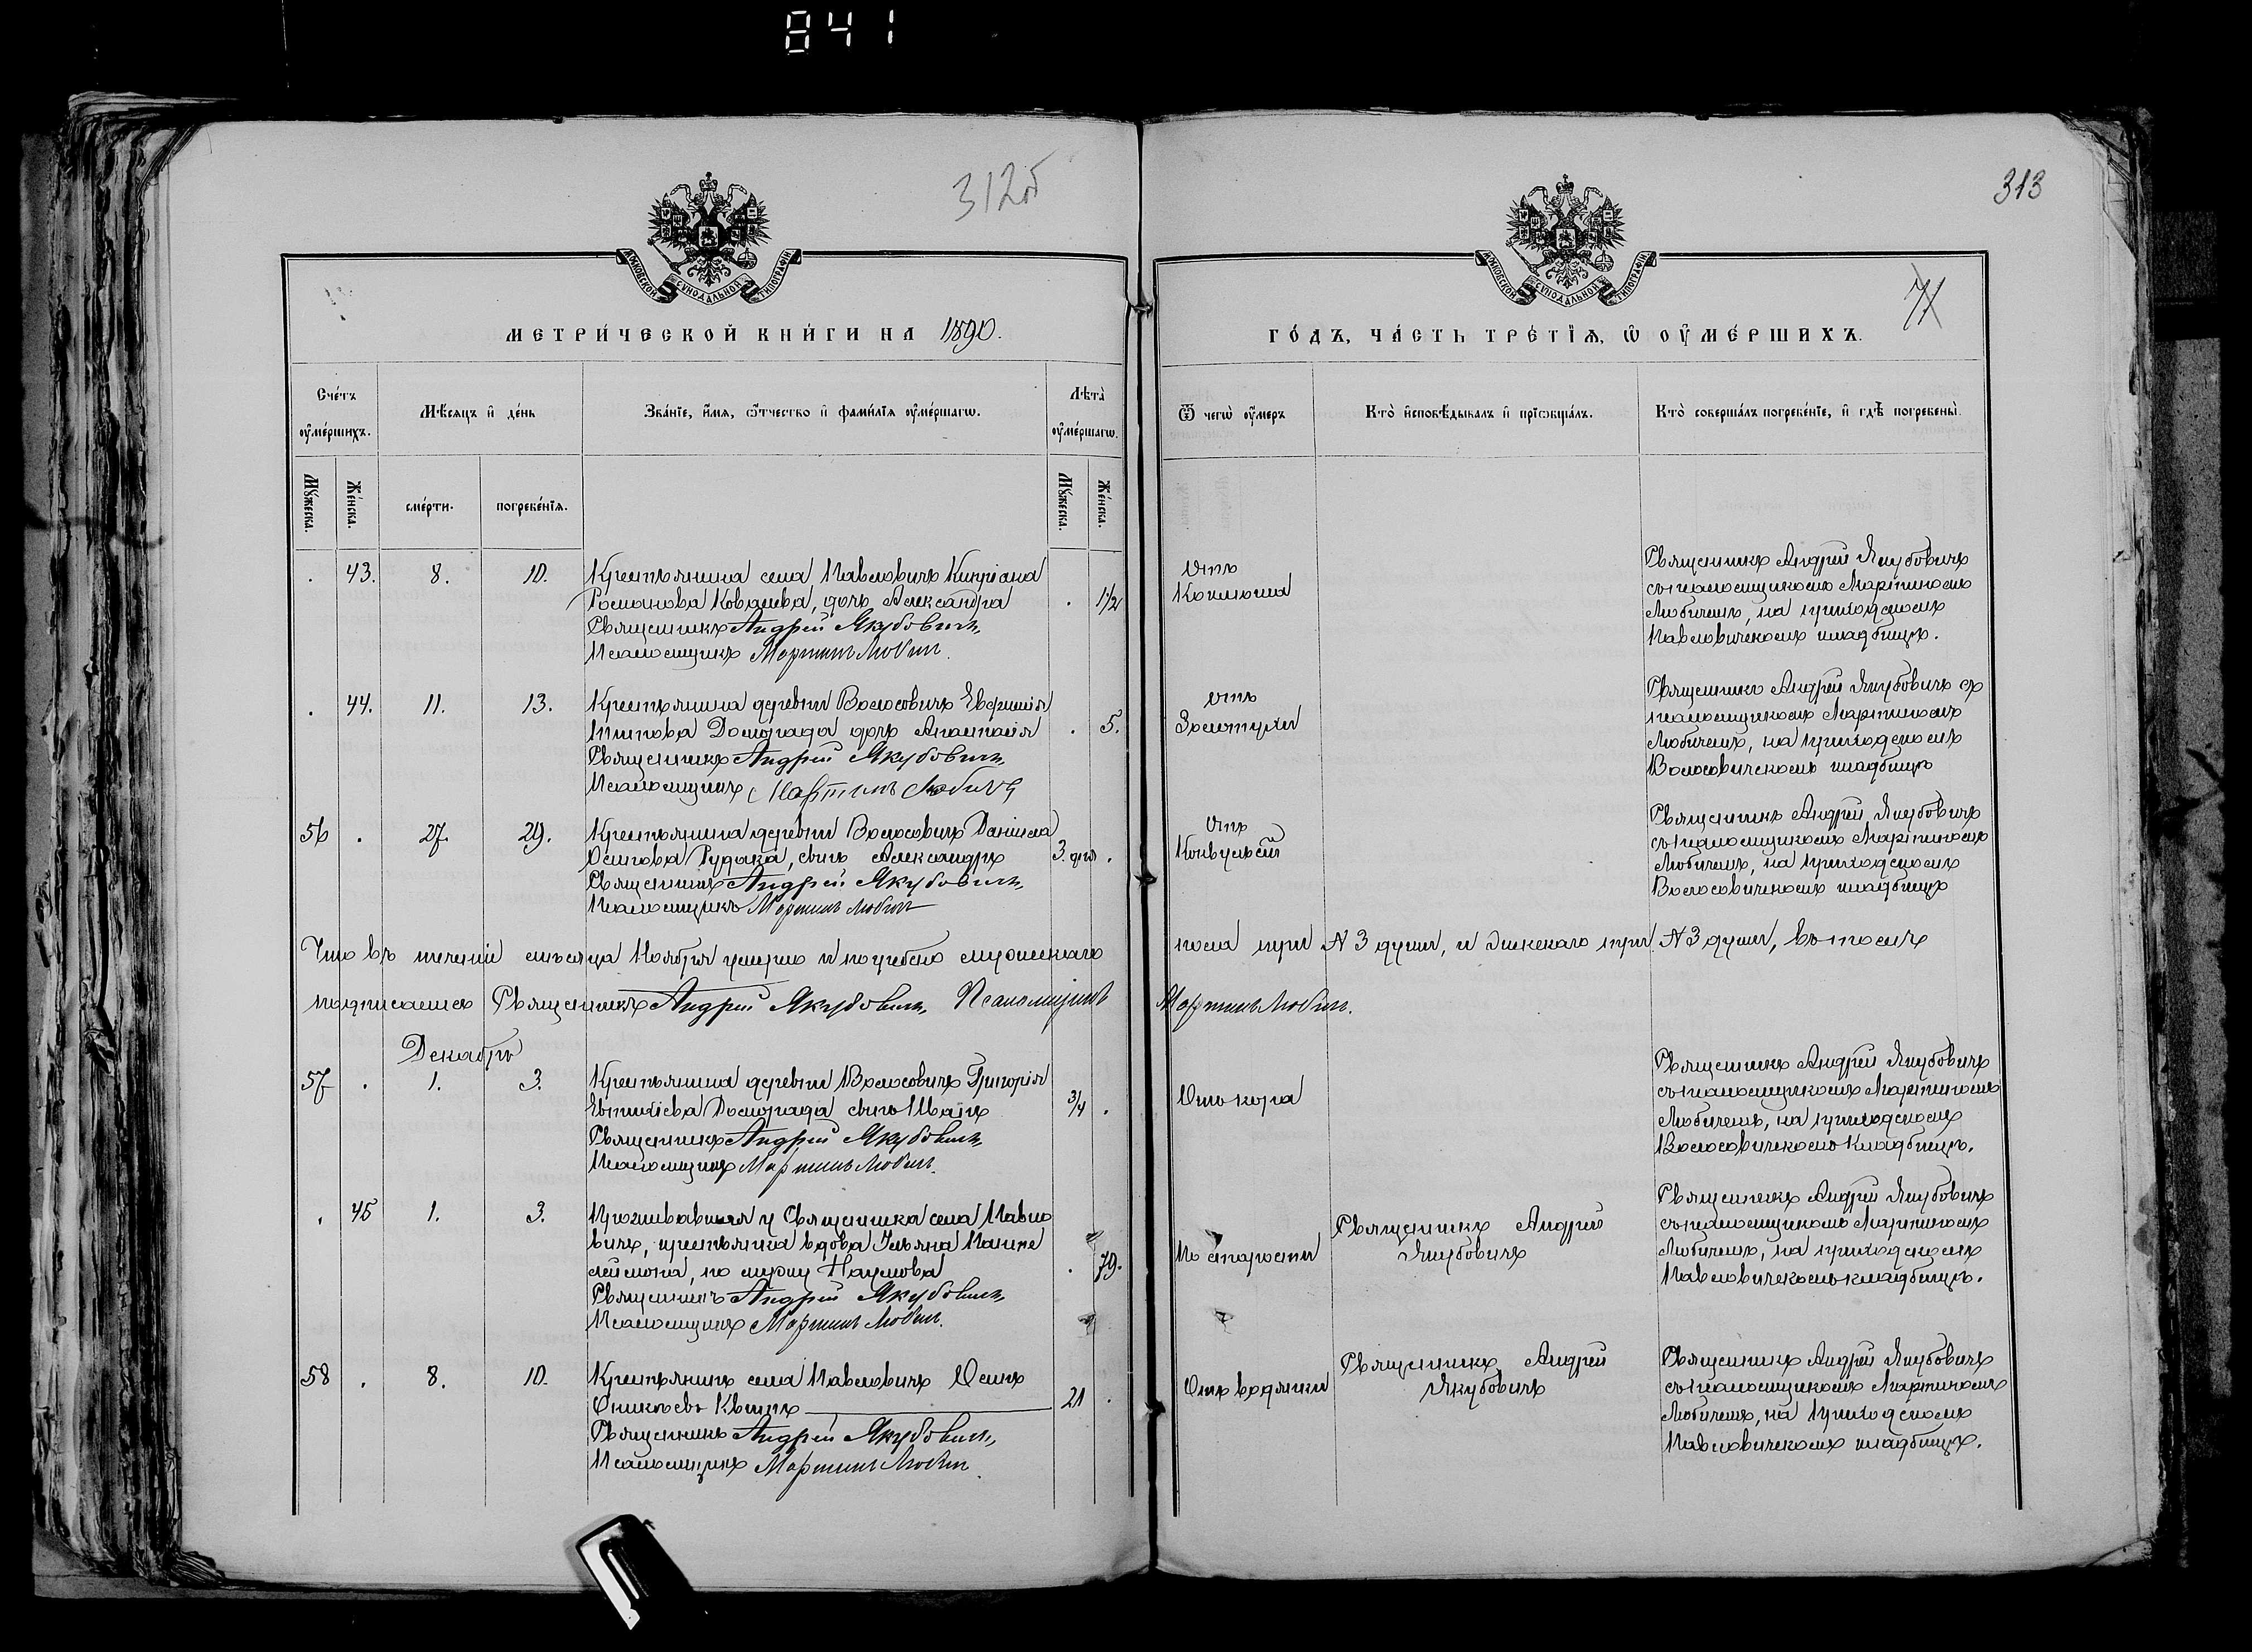 841
312об
313
МОСКОВСКОЙ СѴНОДАЛЬНОЙ ТИПОГРАФІИ
МОСКОВСКОЙ СѴНОДАЛЬНОЙ ТИПОГРАФІИ
71
МЕТРИ́ЧЕСКОЙ КНИ́ГИ НА 1890.
ГО́ДЪ, ЧА́СТЬ ТРЕ́ТІѦ, Ѡ҆ ОУ҆МЕ́РШИХЪ.
Сче́тъ
оу҆ме́ршихъ.
Мѣ́сяцъ и҆ де́нь
Зва́нїе, и҆́мя, ѻ҆́тчество и҆ фами́лїя оу҆ме́ршагѡ.
Лѣта̀
оу҆ме́ршагѡ.
Ѿ чегѡ̀ оу҆́меръ
Кто̀ и҆сповѣ́дывалъ и҆ прїѡбща́лъ.
Кто̀ соверша́лъ погребе́нїе, и҆ гдѣ̀ погребены̀.
Мꙋ́жеска.
Же́нска.
сме́рти.
погребе́нїя.
Мꙋ́жеска.
Же́нска.
. 43. 8. 10. Крестьянина села Павловичъ Кипріана
Романова Ковалева, дочь Александра . 1½
Священникъ Андрей Якубовичъ
Псаломщикъ Мартинъ Любич
Отъ
Коклюша
Священникъ Андрей Якубовичъ
съ псаломщикомъ Мартиномъ
Любичемъ, на приходскомъ
Павловичскомъ кладбищѣ.
. 44. 11. 13. Крестьянина деревни Волосовичъ Евфимія
Доморада дочь Анастасія . 5.
Священникъ Андрей Якубовичъ
Псаломщикъ Мартинъ Любичъ
Отъ
Золотухи
Священникъ Андрей Якубовичъ съ
псаломщикомъ Мартиномъ
Любичемъ, на приходскомъ
Волосовичскомъ кладбищѣ
56 . 27. 29. Крестьянина деревни Волосовичъ Даніила
Осипова Рудака, сынъ Александръ 3. дня .
Священникъ Андрей Якубовичъ
Псаломщикъ Мартинъ Любич
Отъ
Конвульсій
Священникъ Андрей Якубовичъ
съ псаломщикомъ Мартиномъ
Любичемъ, на приходскомъ
Волосовичскомъ кладбищѣ
Что въ теченіи мѣсяца Ноября умерло и погребено мужескаго пола три № 3 души, и женскаго три № 3 души, въ томъ
подписались Священникъ Андрей Якубовичъ Псаломщикъ Мартинъ Любич.
Декабрь
57 . 1. 3. Крестьянина деревни Волосовичъ Григорія
Евтихіева Доморада сынъ Иванъ ¾ .
Священникъ Андрей Якубовичъ
Псаломщикъ Мартинъ Любич.
Отъ кора
Священникъ Андрей Якубовичъ
съ псаломщикомъ Мартиномъ
Любичемъ, на приходскомъ
Волосовичскомъ Кладбищѣ.
. 45 1. 3. Проживавшая у Священника села Павло
вичъ, крестьянка вдова Ульяна Панте
леймона, по мужу Наумова . 79.
Священникъ Андрей Якубовичъ
Псаломщикъ Мартинъ Любич.
По старости
Священникъ Андрей
Якубовичъ
Священникъ Андрей Якубовичъ
съ псаломщикомъ Мартиномъ
Любичемъ, на приходскомъ
Павловичскомъ кладбищѣ.
58 . 8. 10. Крестьянинъ села Павловичъ Осипъ
21 .
Священникъ Андрей Якубовичъ
Псаломщикъ Мартинъ Любич
Отъ водянки
Священникъ Андрей
Якубовичъ
Священникъ Андрей Якубовичъ
съ псаломщикомъ Мартиномъ
Любичемъ, на приходскомъ
Павловичскомъ кладбищѣ.